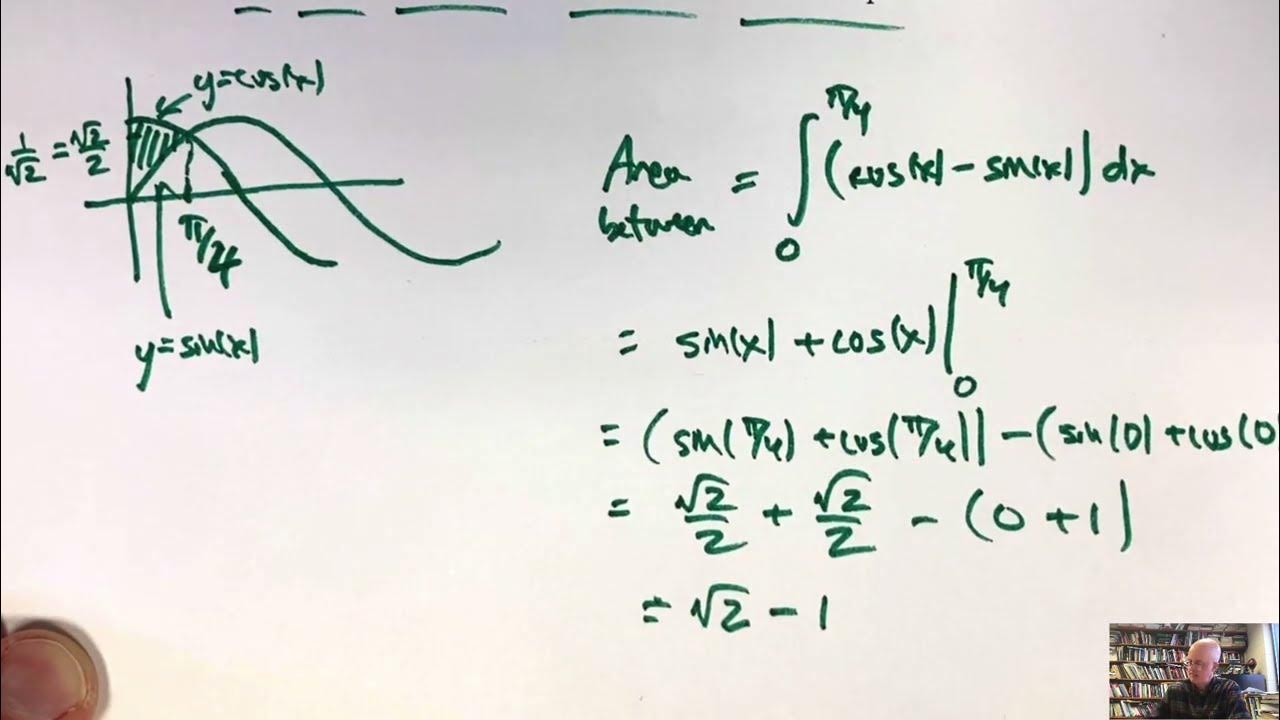 y=cos(x)
1/√2 = √2/2
π/4
y=sin(x)
Area between = ∫₀^π/4 (cos(x) - sin(x)) dx
= sin(x) + cos(x) |₀^π/4
= (sin(π/4) + cos(π/4)) - (sin(0) + cos(0
= √2/2 + √2/2 - (0 + 1)
= √2 - 1